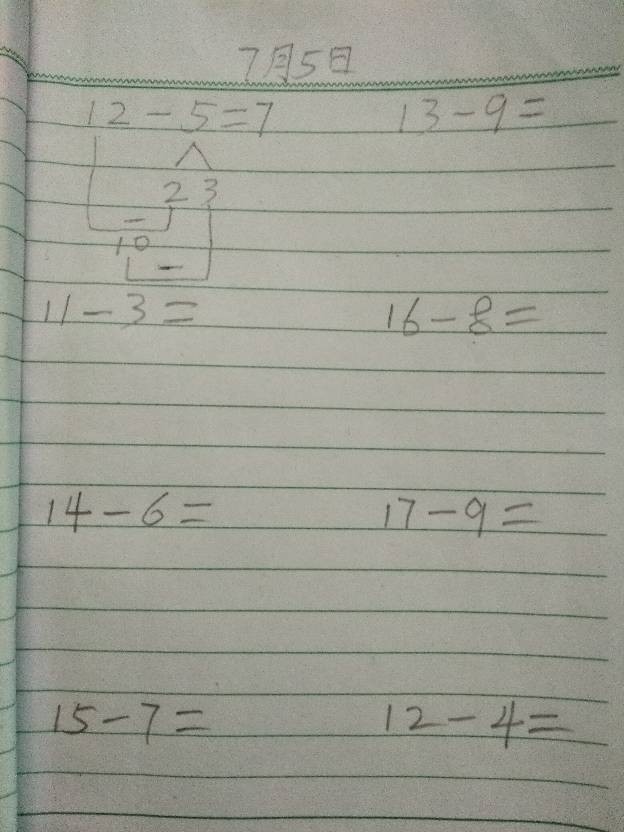 7月5日
12-5=7 13-9=
2 3
-
10
-
11-3= 16-8=
14-6= 17-9=
15-7= 12-4=